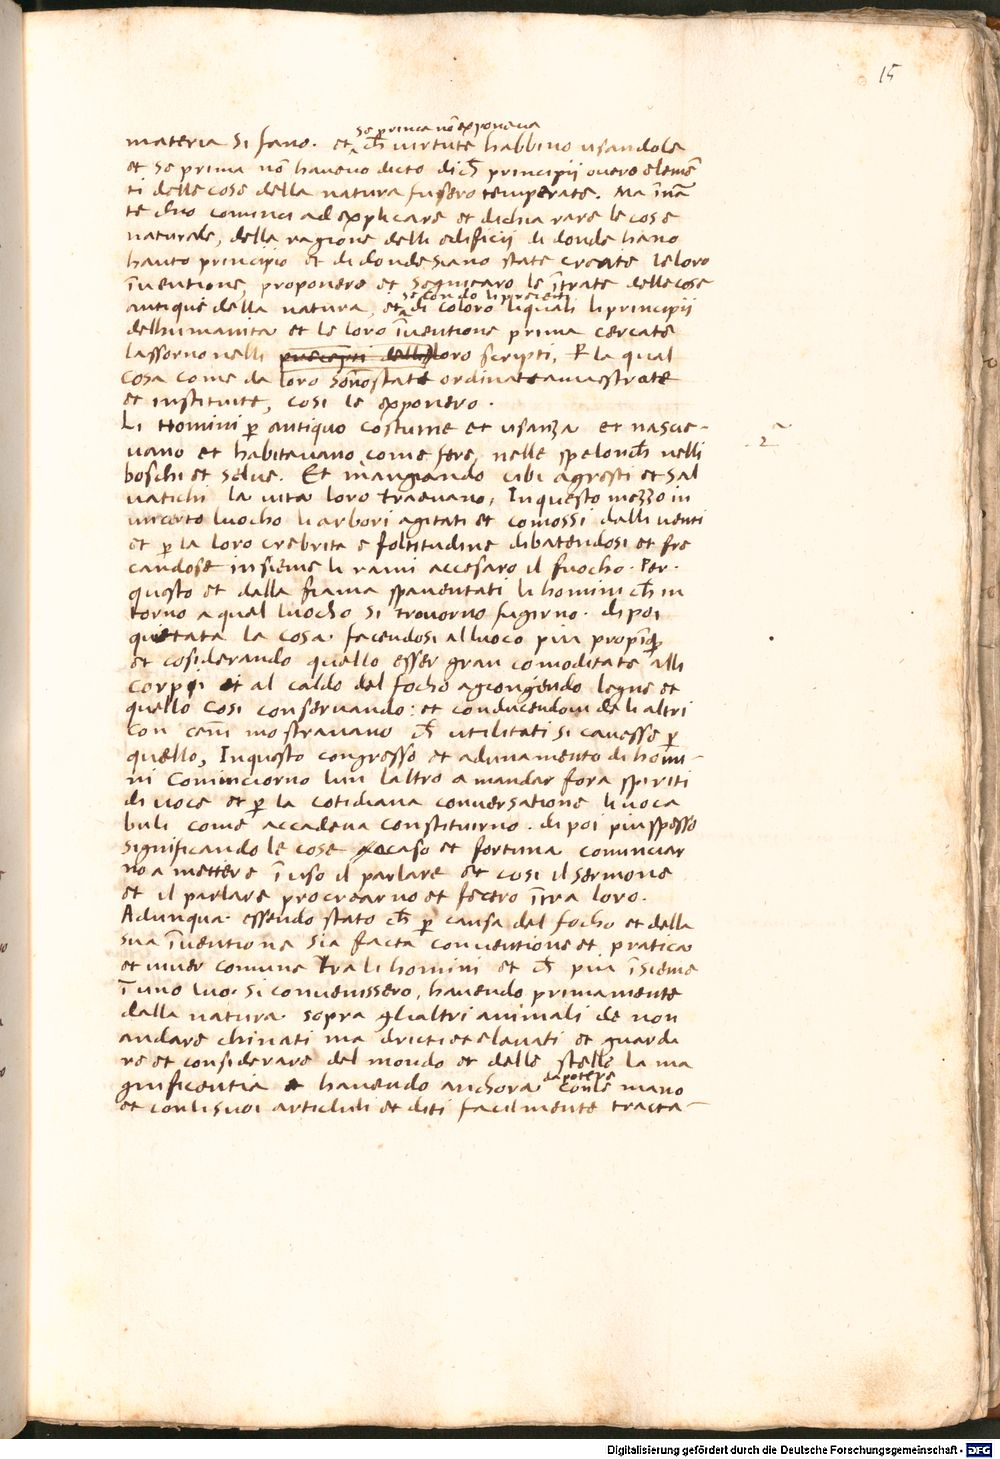 15
se prima nō exponeva
materia si fano. et ch̄ virtute habbino usandole
et se prima nō havevo dicto di ch̄ principii overo elemē
ti delle cose della natura fussero temperate. Ma īnā
te ch̄io cominci ad explicare et dichiarare le cose
naturale, della ragione delli edificii di donde hano
hauto principio et di donde siano state create le loro
īventione, proponero et seguitaro le ītrate delle cose
secondo li precepti
antique della natura, et di coloro liquali li principii
dell humanita et le loro īventione prima cercate
lassorno nelli precepti delli loro scripti, P̱ la qual
cosa come da loro sono state ordinate amaestrate
et instituite, cosi le exponero.
Li Homini p̱ antiquo costume et usanza et nasce-
vano et habitavano come fere, nelle spelonch̄ nelli
boschi et selve. Et mangiando cibi agresti et sal
vatichi la vita loro traevano, In questo mezzo in
un certo luocho li arbori agitati et comossi dalli venti
et p̱ la loro crebrita e foltitudine dibatendosi et fre
candose insieme li rami accesaro il fuocho. Per
questo et dalla fiama spaventati li homini ch̄ in
torno a qual luocho si trovorno fugirno. di poi
quietata la cosa. facendosi al luoco piu propīq̄
et cosiderando quello esser gran comoditate alli
corpi et al caldo del focho agiongendo legne et
quello cosi conservando: et conducendovi de li altri
con cēni mostravano ch̄ utilitati si cavesse p̱
quello, In questo congresso et adunamento di homi-
ni Cominciorno lun laltro a mandar fora spiriti
di voce et p̱ la cotidiana conversatione li voca
buli come accadeva constituirno. di poi piu spesso
significando le cose a caso et fortuna cominciar
no a mettere ī uso il parlare et cosi il sermone
et il parlare procrearno et fecero ītra loro.
Adunqua essendo stato ch̄ p̱ causa del focho et della
sua īventione sia facta conventione et pratica
et viver comune tra li homini et ch̄ piu īsieme
ī uno luo. si convenissero, havendo primamente
dalla natura sopra gli altri animali de non
andare chinati ma dricti et elevati et guarda
re et considerare del mondo et delle stelle la ma
da potere
gnificentia et havendo anchora con le mano
et con li suoi articuli et diti facilmente tracta-